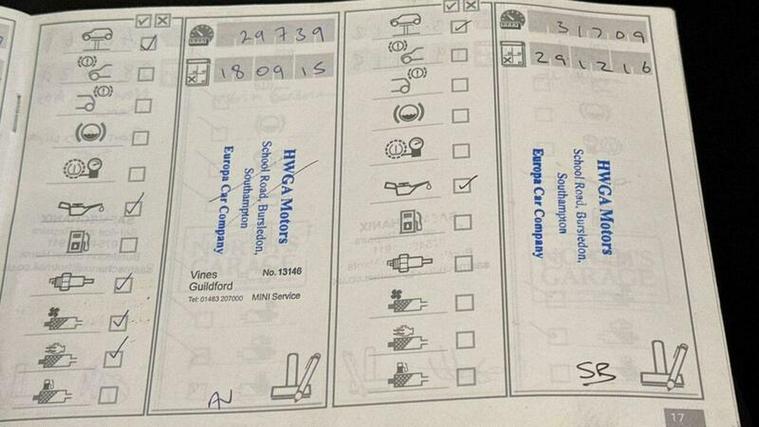 29739
18 09 15
HWGA Motors
School Road, Bursledon,
Southampton
Europa Car Company
Vines
Guildford
No. 13146
Tel: 01483 207000 MINI Service
AV
31709
29 12 16
HWGA Motors
School Road, Bursledon,
Southampton
Europa Car Company
SB
17